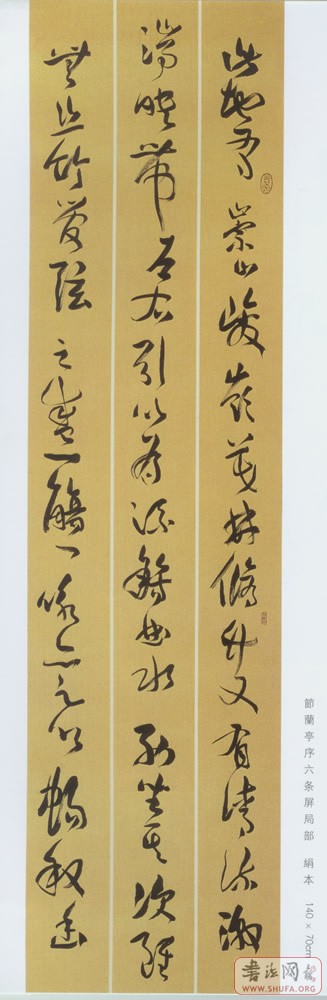 此地有崇山峻嶺茂林脩竹又有清流激
湍暎帶左右引以為流觴曲水列坐其次雖
無絲竹管弦之盛一觴一詠亦足以暢叙幽
節蘭亭序六条屏局部 絹本 140×70cm
書法网
WWW.SHUFA.ORG